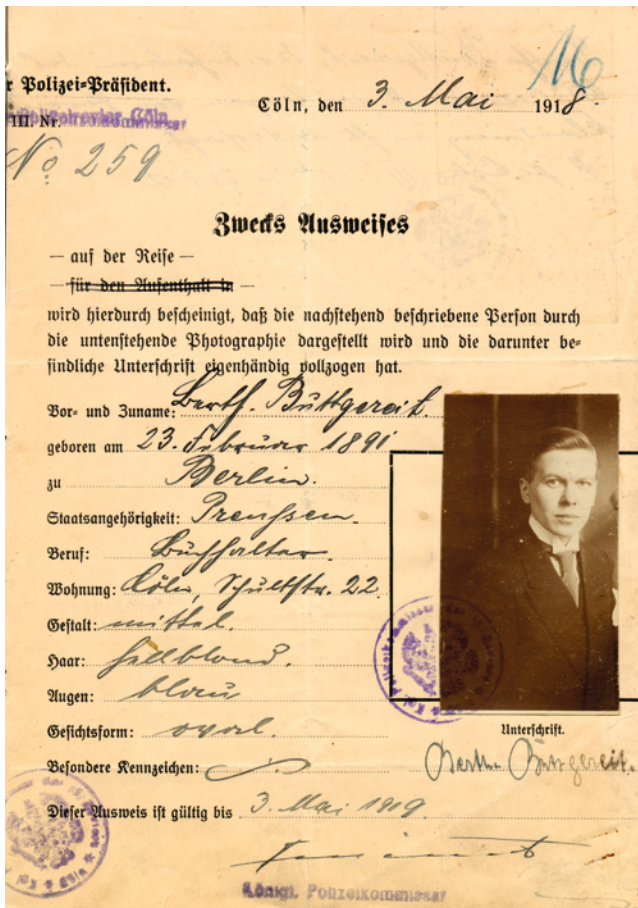 r Polizei-Präsident.
16
Cöln, den 3. Mai 1918.
III. Nr.
No 259
Zwecks Ausweises
— auf der Reise —
— für den Aufenthalt in —
wird hierdurch bescheinigt, daß die nachstehend beschriebene Person durch
die untenstehende Photographie dargestellt wird und die darunter be-
findliche Unterschrift eigenhändig vollzogen hat.
Vor- und Zuname: Berth. Buttgereit.
geboren am 23. Februar 1891
zu Berlin.
Staatsangehörigkeit: Preussen.
Beruf: Buchhalter.
Wohnung: Cöln, Schultstr. 22
Gestalt: mittel.
Haar: hellblond.
Augen: blau
Gesichtsform: oval.
Unterschrift.
Besondere Kennzeichen:
Bertha Buttgereit.
Dieser Ausweis ist gültig bis 3. Mai 1919.
Königl. Polizeikommissar